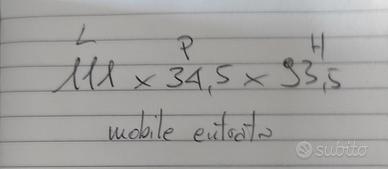 L P H
111 x 34,5 x 93,5
mobile entrata
subito